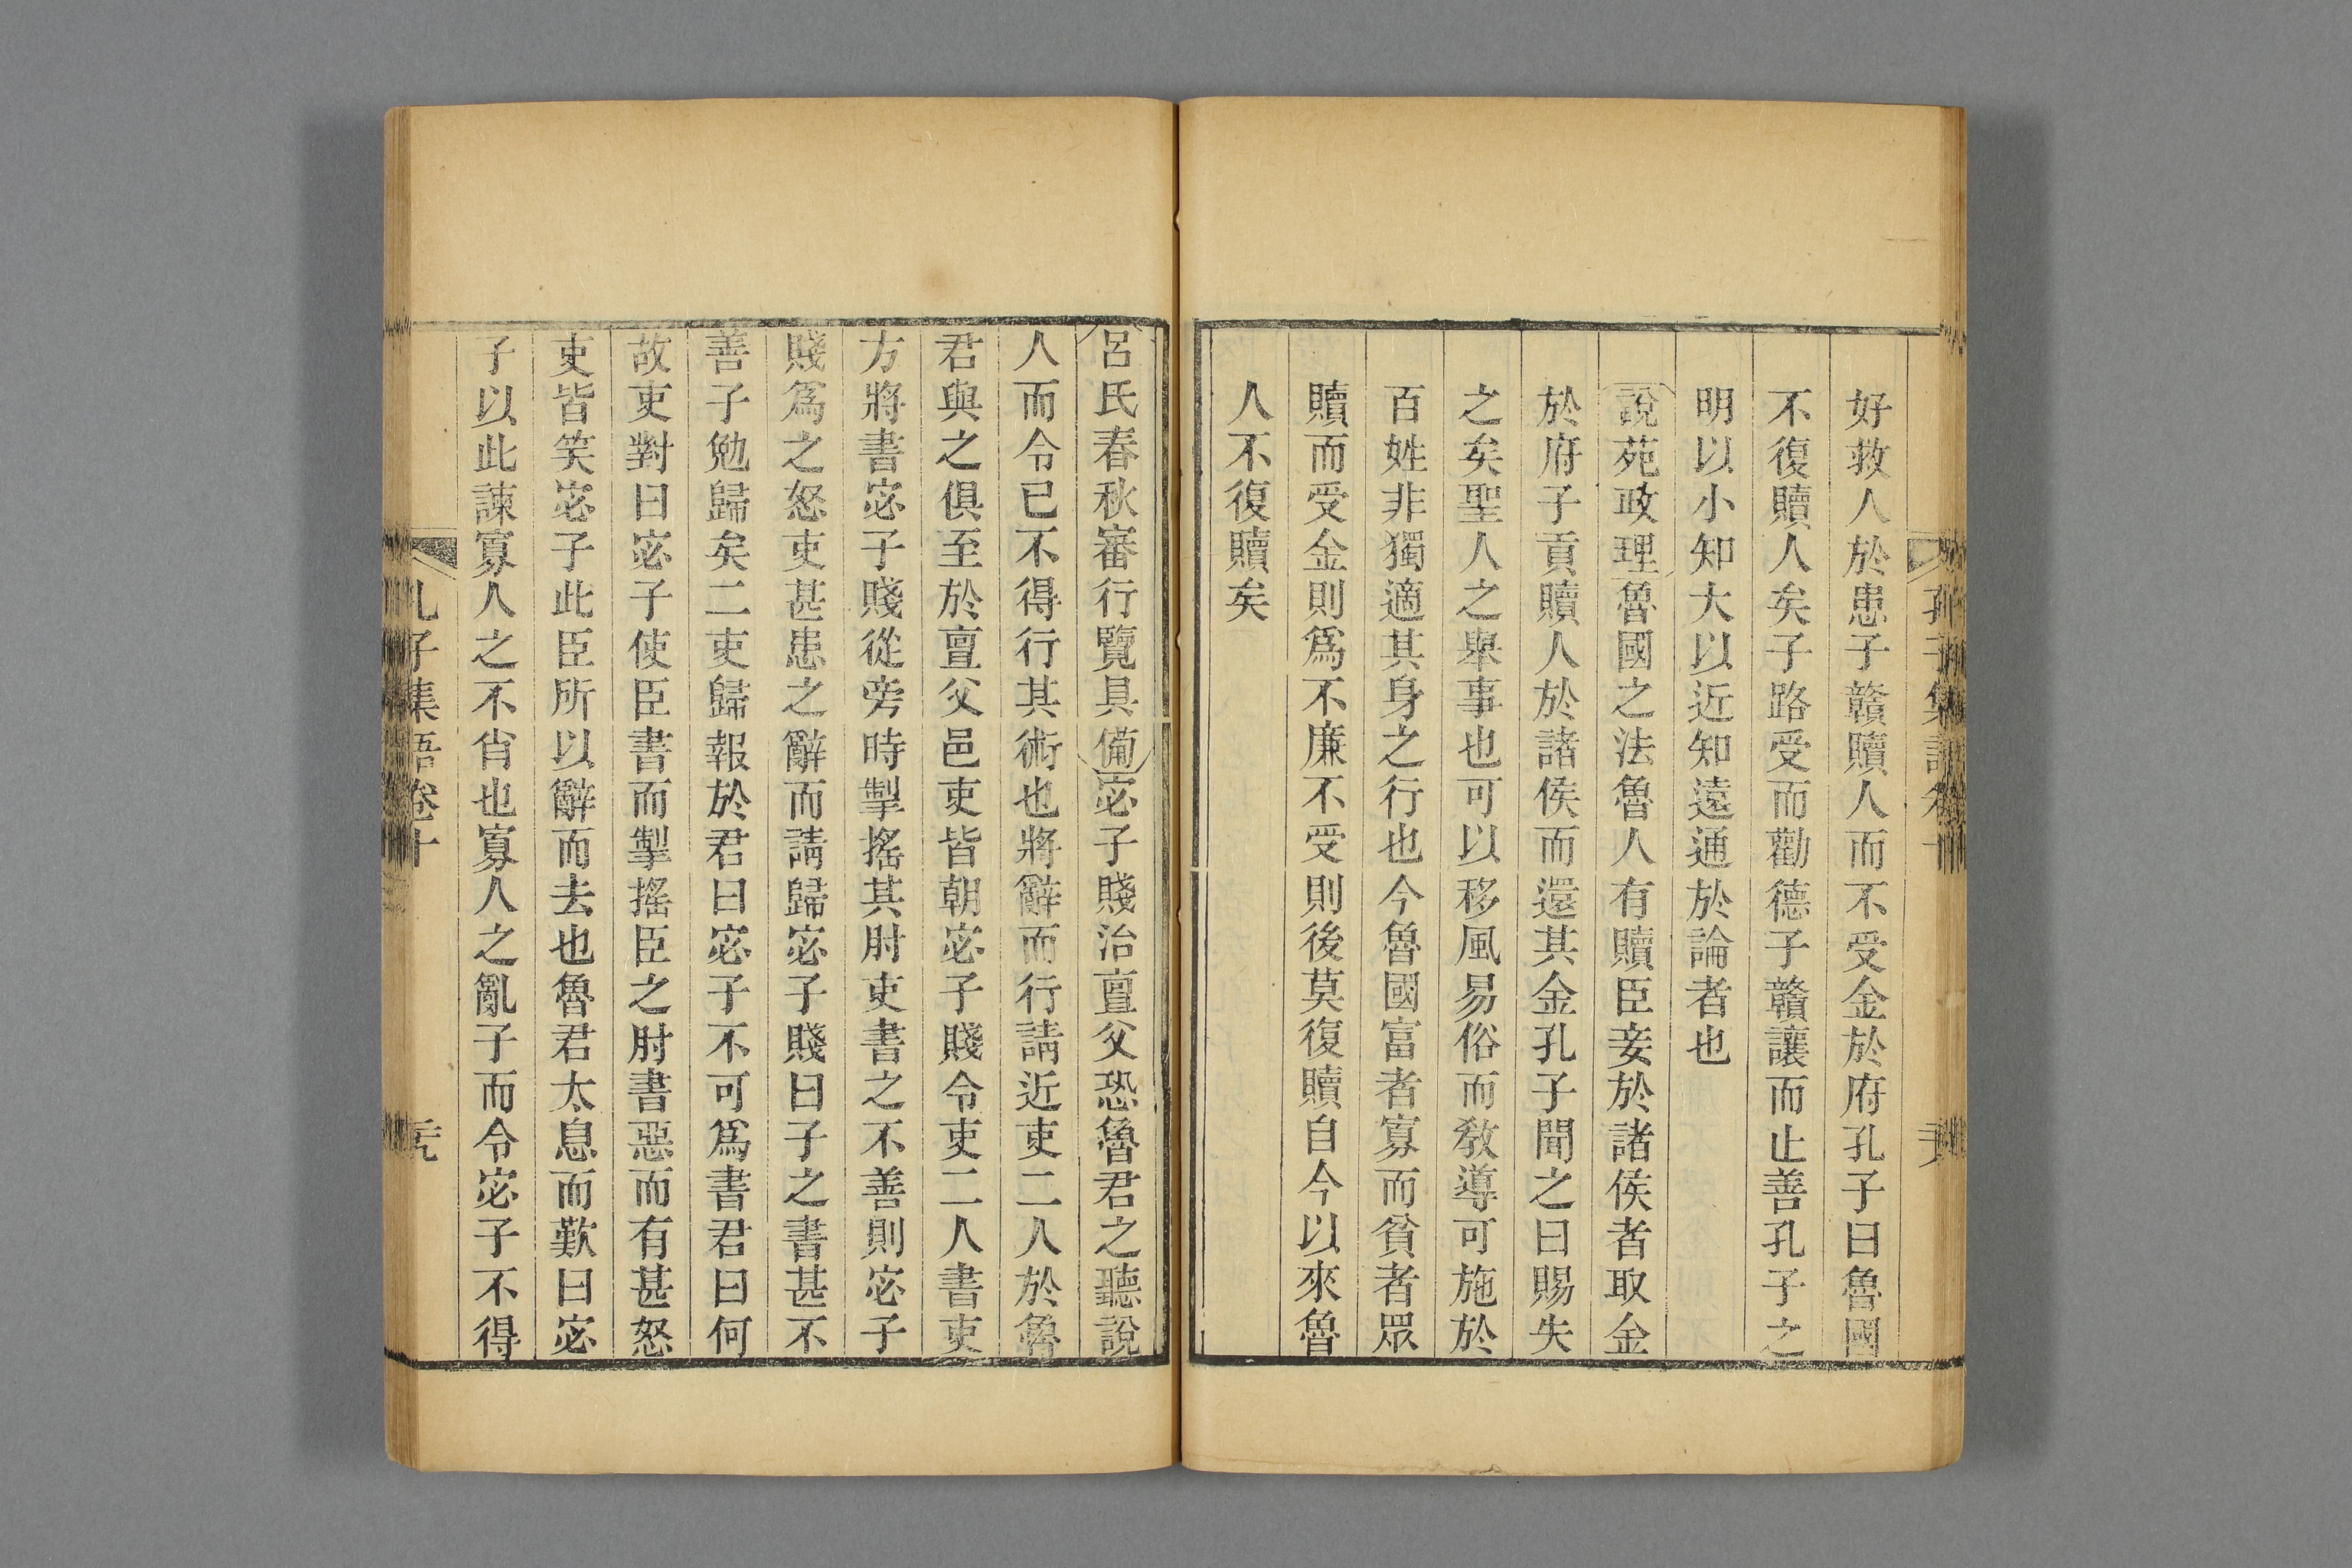 好救人於患子贛贖人而不受金於府孔子曰魯國
不復贖人矣子路受而勸德子贛讓而止善孔子之
明以小知大以近知遠通於論者也
說苑政理魯國之法魯人有贖臣妾於諸侯者取金
於府子貢贖人於諸侯而還其金孔子聞之曰賜失
之矣聖人之舉事也可以移風易俗而敎導可施於
百姓非獨適其身之行也今魯國富者寡而貧者眾
贖而受金則爲不廉不受則後莫復贖自今以來魯
人不復贖矣
呂氏春秋審行覽具備宓子賤治亶父恐魯君之聽說
人而令已不得行其術也將辭而行請近吏二人於魯
君與之俱至於亶父邑吏皆朝宓子賤令吏二人書吏
方將書宓子賤從旁時掣搖其肘吏書之不善則宓子
賤爲之怒吏甚患之辭而請歸宓子賤曰子之書甚不
善子勉歸矣二吏歸報於君曰宓子不可爲書君曰何
故吏對曰宓子使臣書而掣搖臣之肘書惡而有甚怒
吏皆笑宓子此臣所以辭而去也魯君太息而歎曰宓
子以此諫寡人之不肖也寡人之亂子而令宓子不得
孔子集語卷十